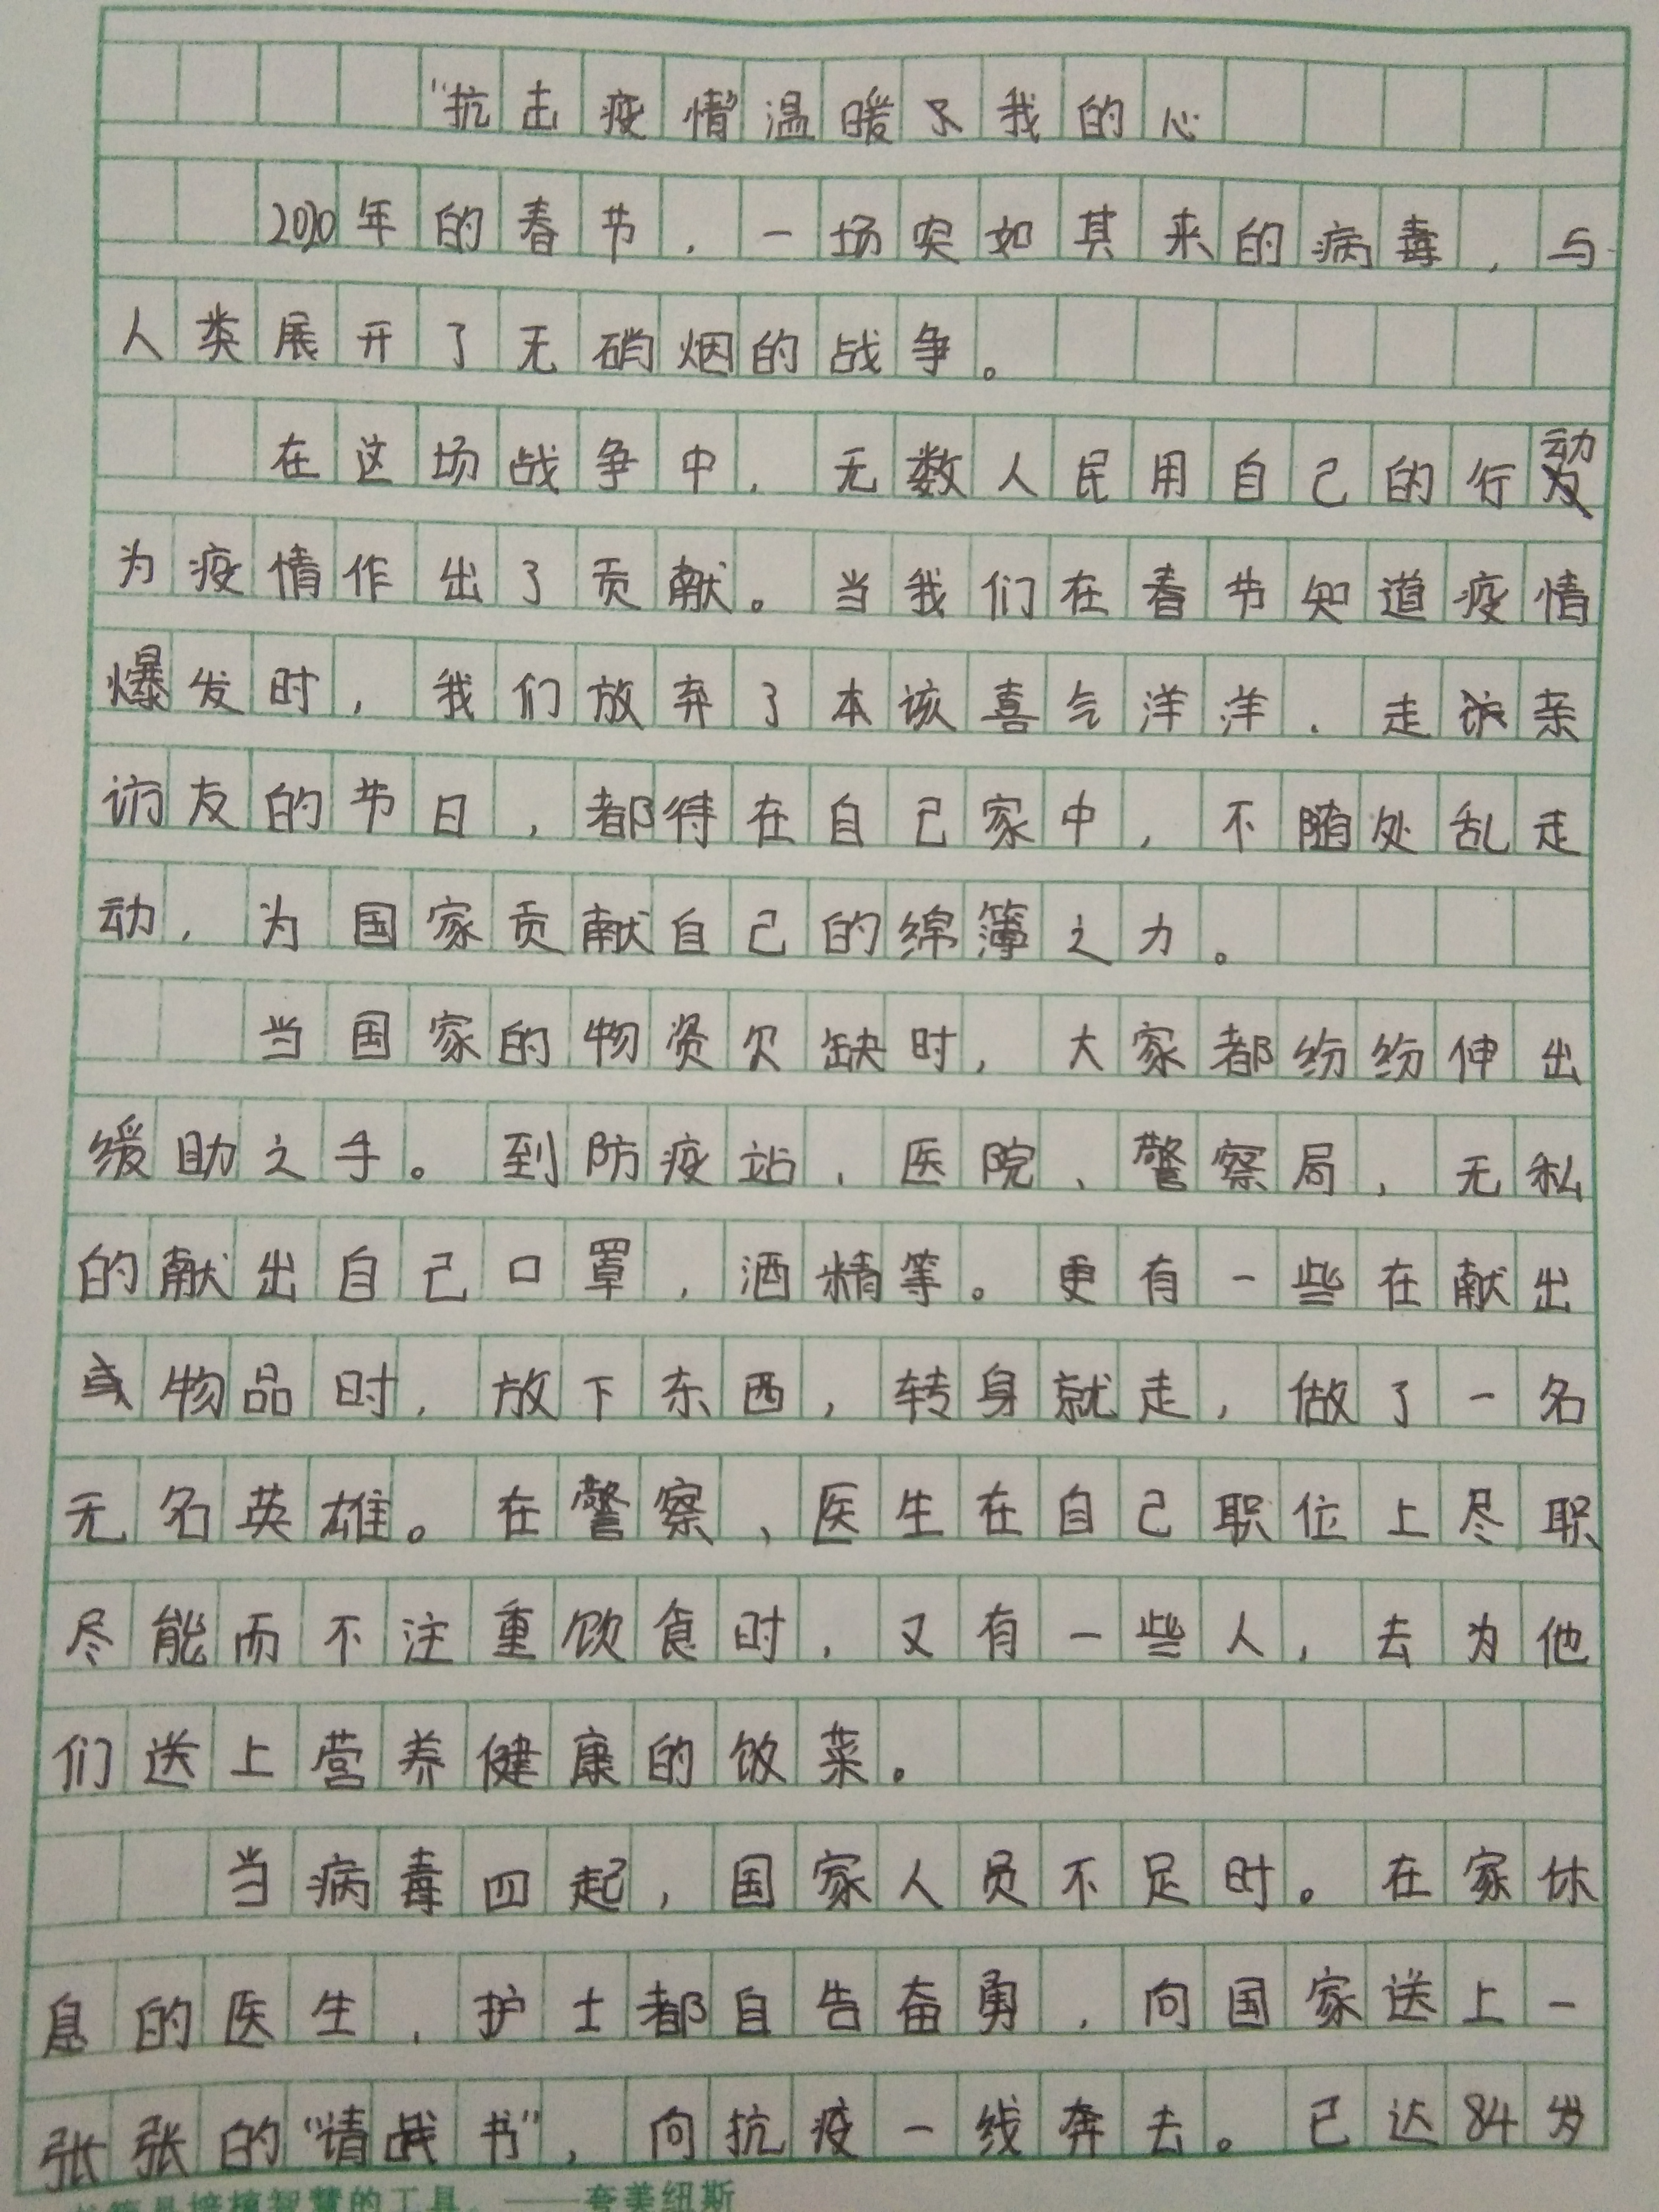 “抗击疫情”温暖了我的心
2020年的春节，一场突如其来的病毒，与
人类展开了无硝烟的战争。
在这场战争中，无数人民用自己的行动
为疫情作出了贡献。当我们在春节知道疫情
爆发时，我们放弃了本该喜气洋洋、走亲
访友的节日，都待在自己家中，不随处乱走
动，为国家贡献自己的绵簿之力。
当国家的物资欠缺时，大家都纷纷伸出
缓助之手。到防疫站、医院、警察局，无私
的献出自己口罩，酒精等。更有一些在献出
物品时，放下东西，转身就走，做了一名
无名英雄。在警察、医生在自己职位上尽职
尽能而不注重饮食时，又有一些人，去为他
们送上营养健康的饭菜。
当病毒四起，国家人员不足时。在家休
息的医生、护士都自告奋勇，向国家送上一
张张的“情战书”，向抗疫一线奔去。已达84岁
智慧的工具。——夸美纽斯